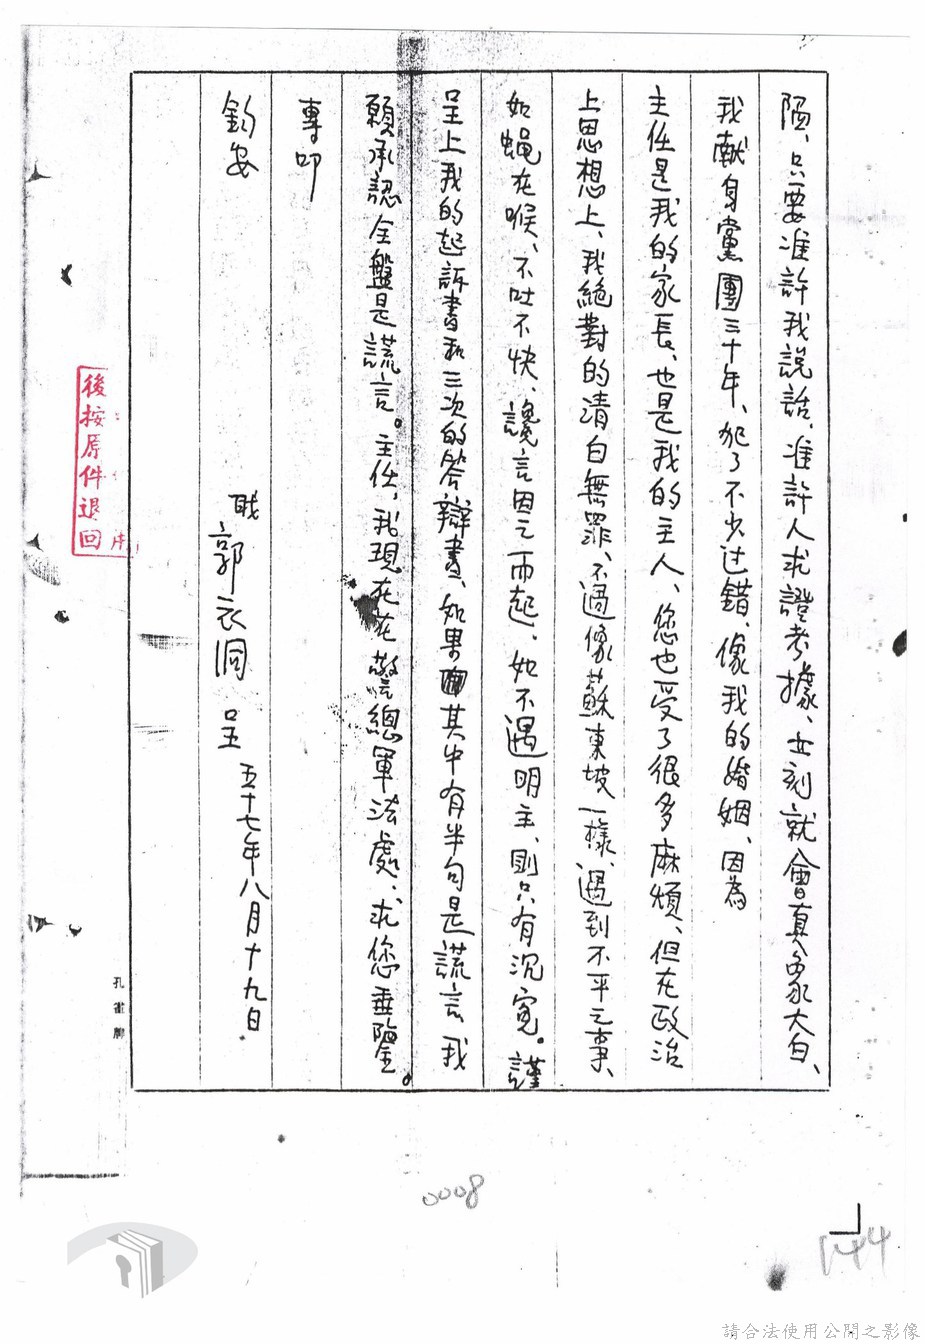 隕、只要准許我說話、准許人求證考據、立刻就會真象大白、
我獻身黨團三十年、犯了不少过錯、像我的婚姻、因為
主任是我的家長、也是我的主人、您也受了很多麻煩、但在政治
上思想上、我絕對的清白無罪、不過像蘇東坡一樣、遇到不平之事、
如蠅在喉、不吐不快、讒言因之而起、如不遇明主、則只有沉寃。謹
呈上我的起訴書和三次的答辯書、如果其中有半句是謊言、我
願承認全盤是謊言。主任、我現在在警總軍法處、求您垂鑒。
專叩
鈞安
職 郭衣洞 呈 五十七年八月十九日
後按原件退回
孔雀牌
0008
144
請合法使用公開之影像